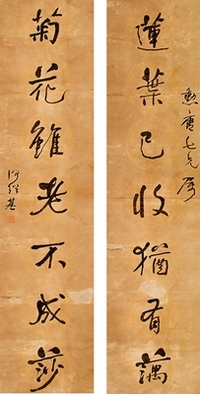 勲唐七兄屬
蓮葉已收猶有藕
菊花雖老不成莎
何紹基